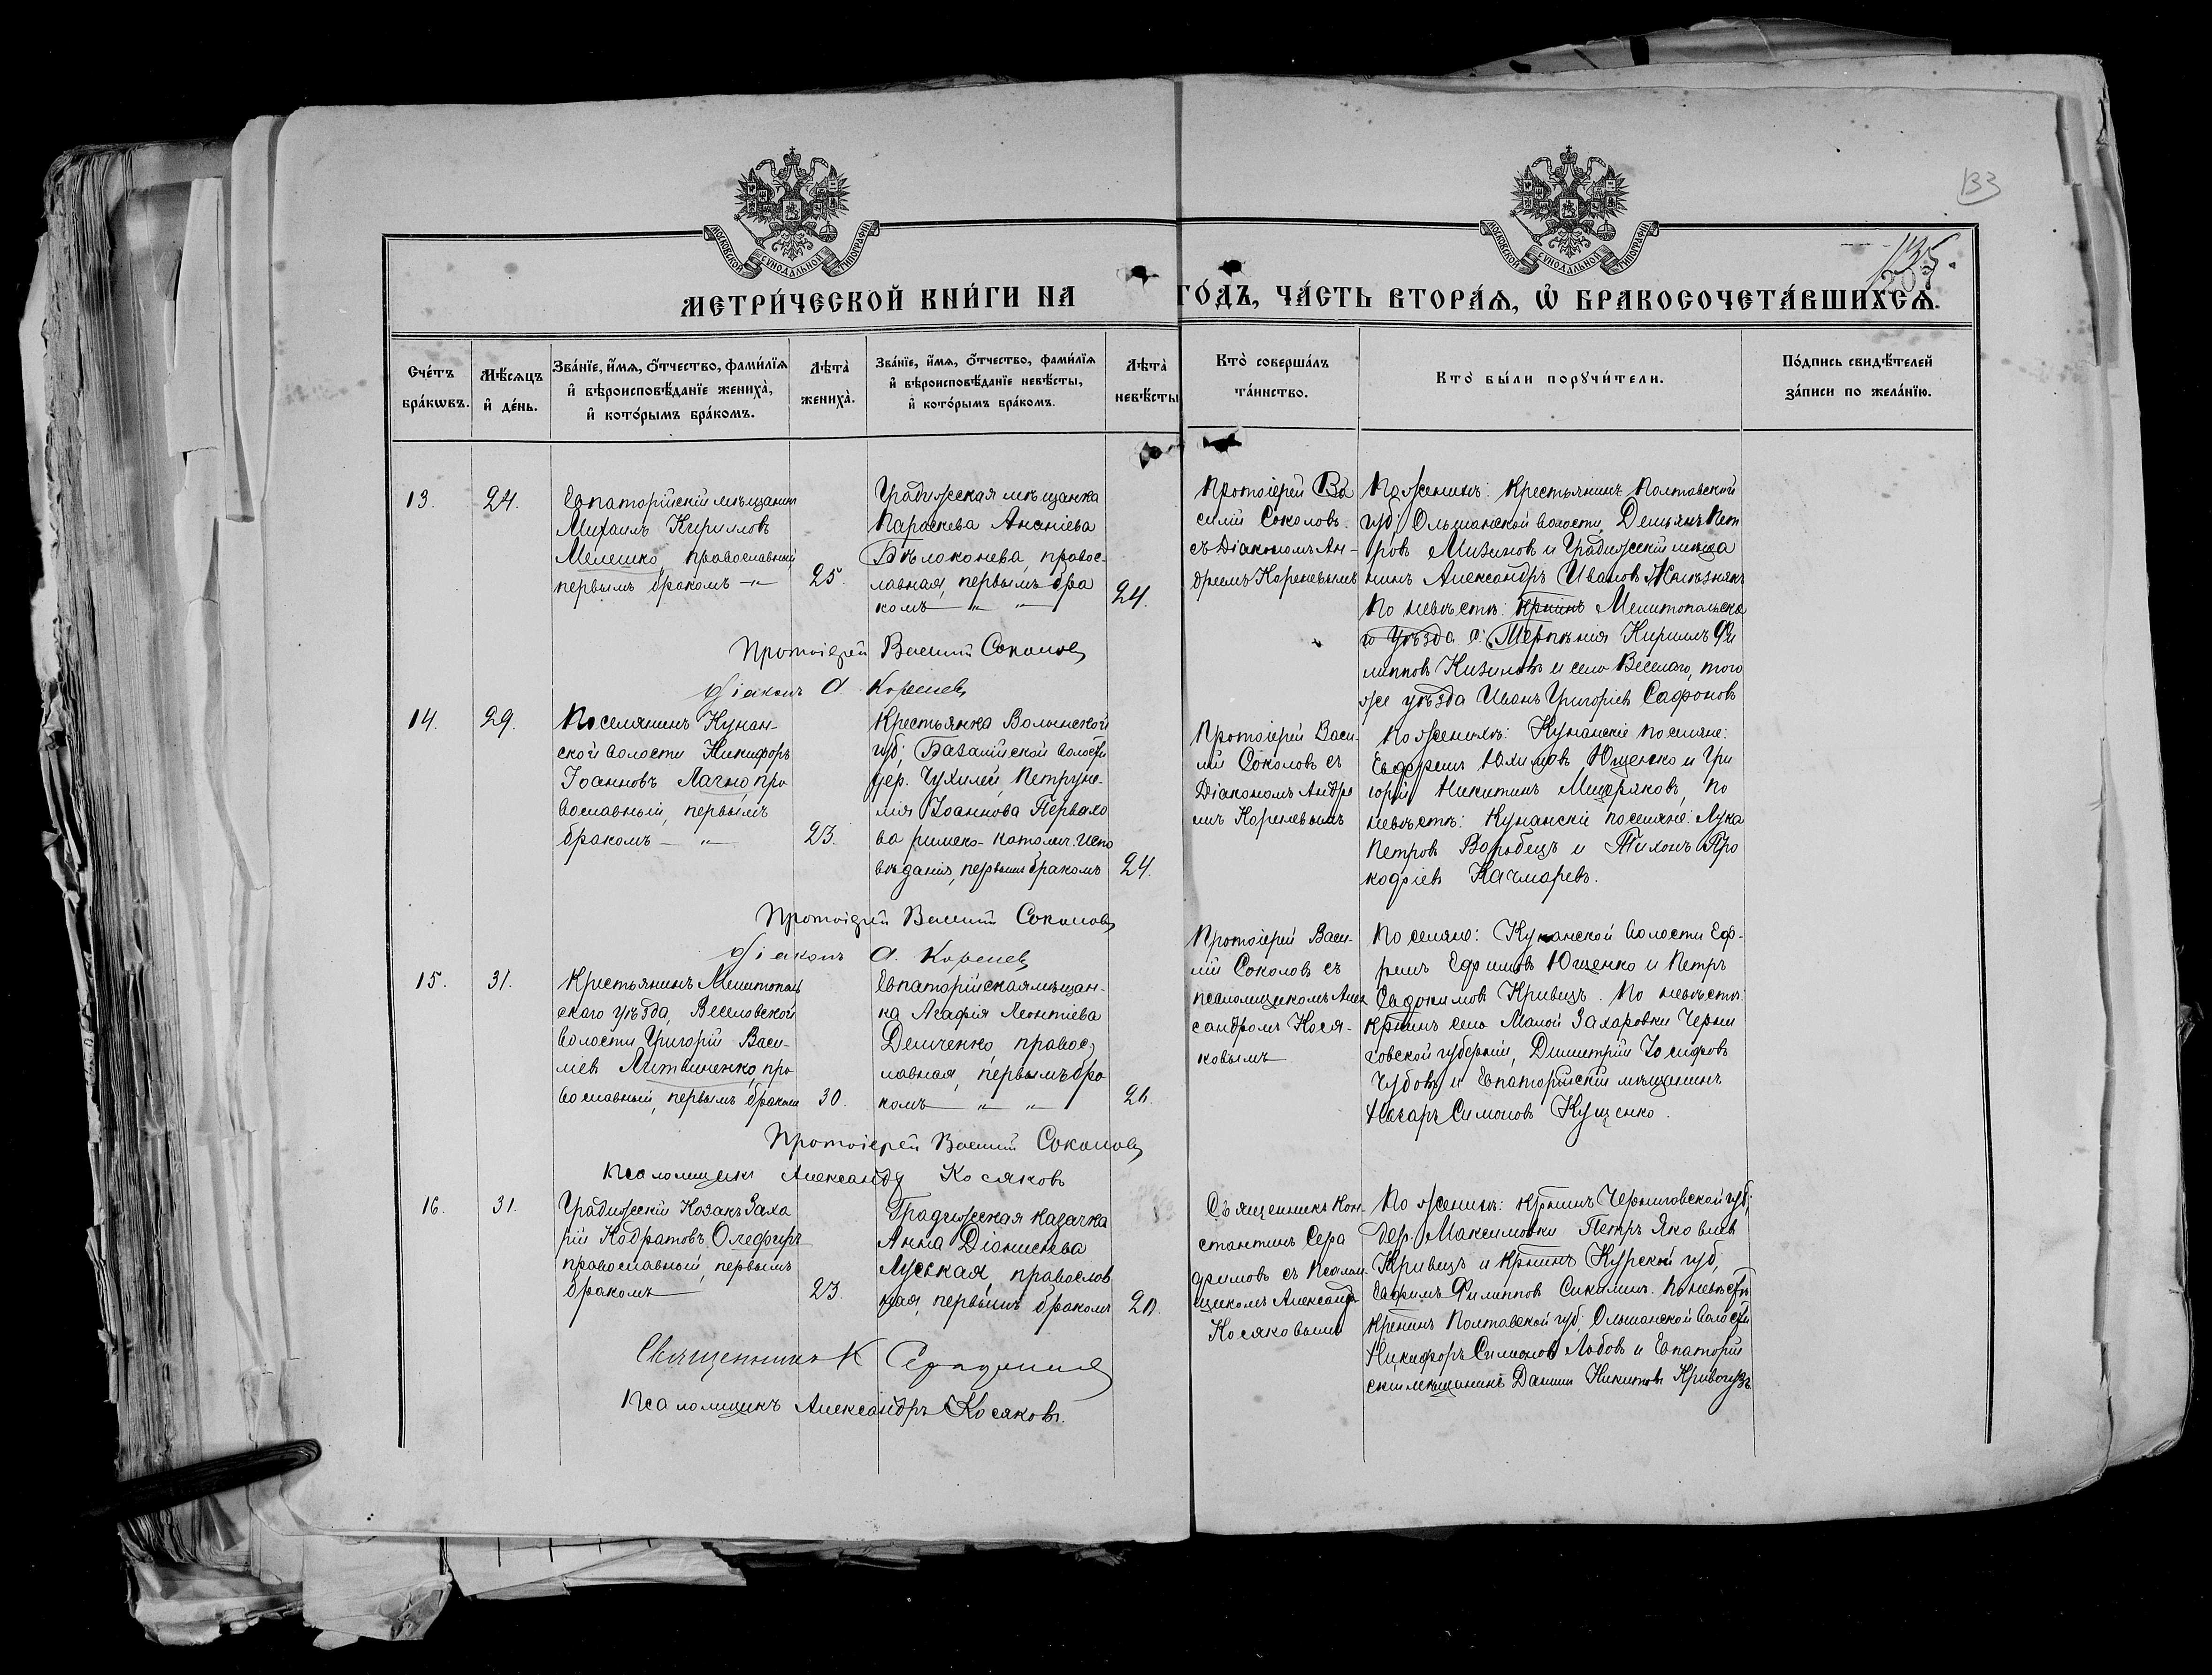 133
135.
МОСКОВСКОЙ СѴНОДАЛЬНОЙ ТИПОГРАФІИ
МОСКОВСКОЙ СѴНОДАЛЬНОЙ ТИПОГРАФІИ
МЕТРИ́ЧЕСКОЙ КНИ́ГИ НА ГО́ДЪ, ЧА́СТЬ ВТОРА́Ѧ, Ѡ҆ БРАКОСОЧЕТА́ВШИХСѦ.
Сче́тъ бра́кѡвъ.
Мѣ́сѧцъ и҆ де́нь.
Зва́нїе, и҆́мѧ, о҆́тчество, фами́лїѧ
и҆ вѣроисповѣ́данїе жениха̀,
и҆ кото́рымъ бра́комъ.
Лѣта̀ жениха̀.
Зва́нїе, и҆́мѧ, о҆́тчество, фами́лїѧ
и҆ вѣроисповѣ́данїе невѣ́сты,
и҆ кото́рымъ бра́комъ.
Лѣта̀ невѣ́сты
Кто̀ соверша́лъ
та́инство.
Кто̀ бы́ли порꙋчи́тели.
По́дпись свидѣ́телей
за́писи по жела́нїю.
13.
24.
Евпаторійскій мѣщанинъ
Михаилъ Кирилловъ
Мелешко, православный
первымъ бракомъ — „
25.
Градижская мѣщанка
Параскева Ананіева
Бѣлоконева, правос-
лавная, первымъ бра
комъ — „ — „ —
24.
Протоіерей Ва
силій Соколовъ
съ Діакономъ Ан-
дреемъ Кореневымъ
По женихѣ: Крестьянинъ Полтавской
губ; Ольшанской волости, Демьянъ Пет
ровъ Мизинов и Градижскій мѣща
нинъ Александръ Ивановъ Желѣзнякъ
По невѣстѣ: кр-нинъ Мелитопольска
го уѣзда с. Кириллъ Фи
липповъ Кизиловъ и села Веселаго, того
же уѣзда Иванъ Григорьевъ Сафоновъ
Протоіерей Василій Соколовъ
Діаконъ А. Кореневъ
14.
29.
Поселянинъ Кунан-
ской волости Никифоръ
Іоанновъ Лагно, пра
вославный, первымъ
бракомъ — „ —
23.
Крестьянка Волынской
губ; Базалійской волости
дер. Чухилей, Петруне-
лія Іоаннова
ва римско-католич. испо
вѣданія, первымъ бракомъ
24.
Протоіерей Васи-
лій Соколовъ съ
Діакономъ Андре
емъ Кореневымъ
По женихѣ: Кунанскіе поселяне:
Ефремъ Ющенко и Гри
горій Никитинъ Мищеряковъ, по
невѣстѣ: Кунанскіе поселяне: Лука
Петровъ Воробецъ и Тихонъ Про
кофіевъ Качмаревъ.
Протоіерей Василій Соколовъ
Діаконъ А. Кореневъ
15.
31.
Крестьянинъ Мелитополь
скаго уѣзда, Веселовской
волости Григорій Васи-
ліевъ Литвиненко, пра
вославный, первымъ бракомъ
30.
Евпаторійская мѣщан-
ка Агафія Леонтіева
Демченко, правос-
лавная, первымъ бра
комъ — „ — „ —
21.
Протоіерей Васи-
лій Соколовъ съ
псаломщикомъ Алек
сандромъ Кося-
ковымъ
Поселяне: Кунанской волости Еф-
ремъ Ефимовъ Ющенко и Петръ
Евдокимовъ Кривецъ. По невѣстѣ:
кр-нинъ села Малой Захаровки Черни
говской губерніи, Димитрій Іосифовъ
Чубовъ и Евпаторійскій мѣщанинъ
Симоновъ Кущенко.
Протоіерей Василій Соколовъ
Псаломщикъ Александръ Косяковъ
16.
31.
Градижскій Козакъ Заха
рій Кодратовъ Олефиръ
православный, первымъ
бракомъ
23.
Градижская казачка
Анна Діонисіева
Луцькая, православ
ная, первымъ бракомъ
20.
Священникъ Кон-
стантинъ Сера
фимовъ съ Псалом-
щикомъ Александр
Косяковымъ
По женихѣ: кр-нинъ Черниговской губ;
дер. Максимовки Петръ Яковлевъ
Кривецъ и кр-нинъ Курской губ,
Ефимъ Филипповъ Сикилинъ. По невѣстѣ
кр-нинъ Полтавской губ; Ольшанской волости
Никифоръ Симоновъ Лобовъ и Евпаторій
скій мѣщанинъ Даниилъ Никитовъ Кривогузъ.
Священникъ К Серафимовъ
Псаломщикъ Александръ Косяковъ.